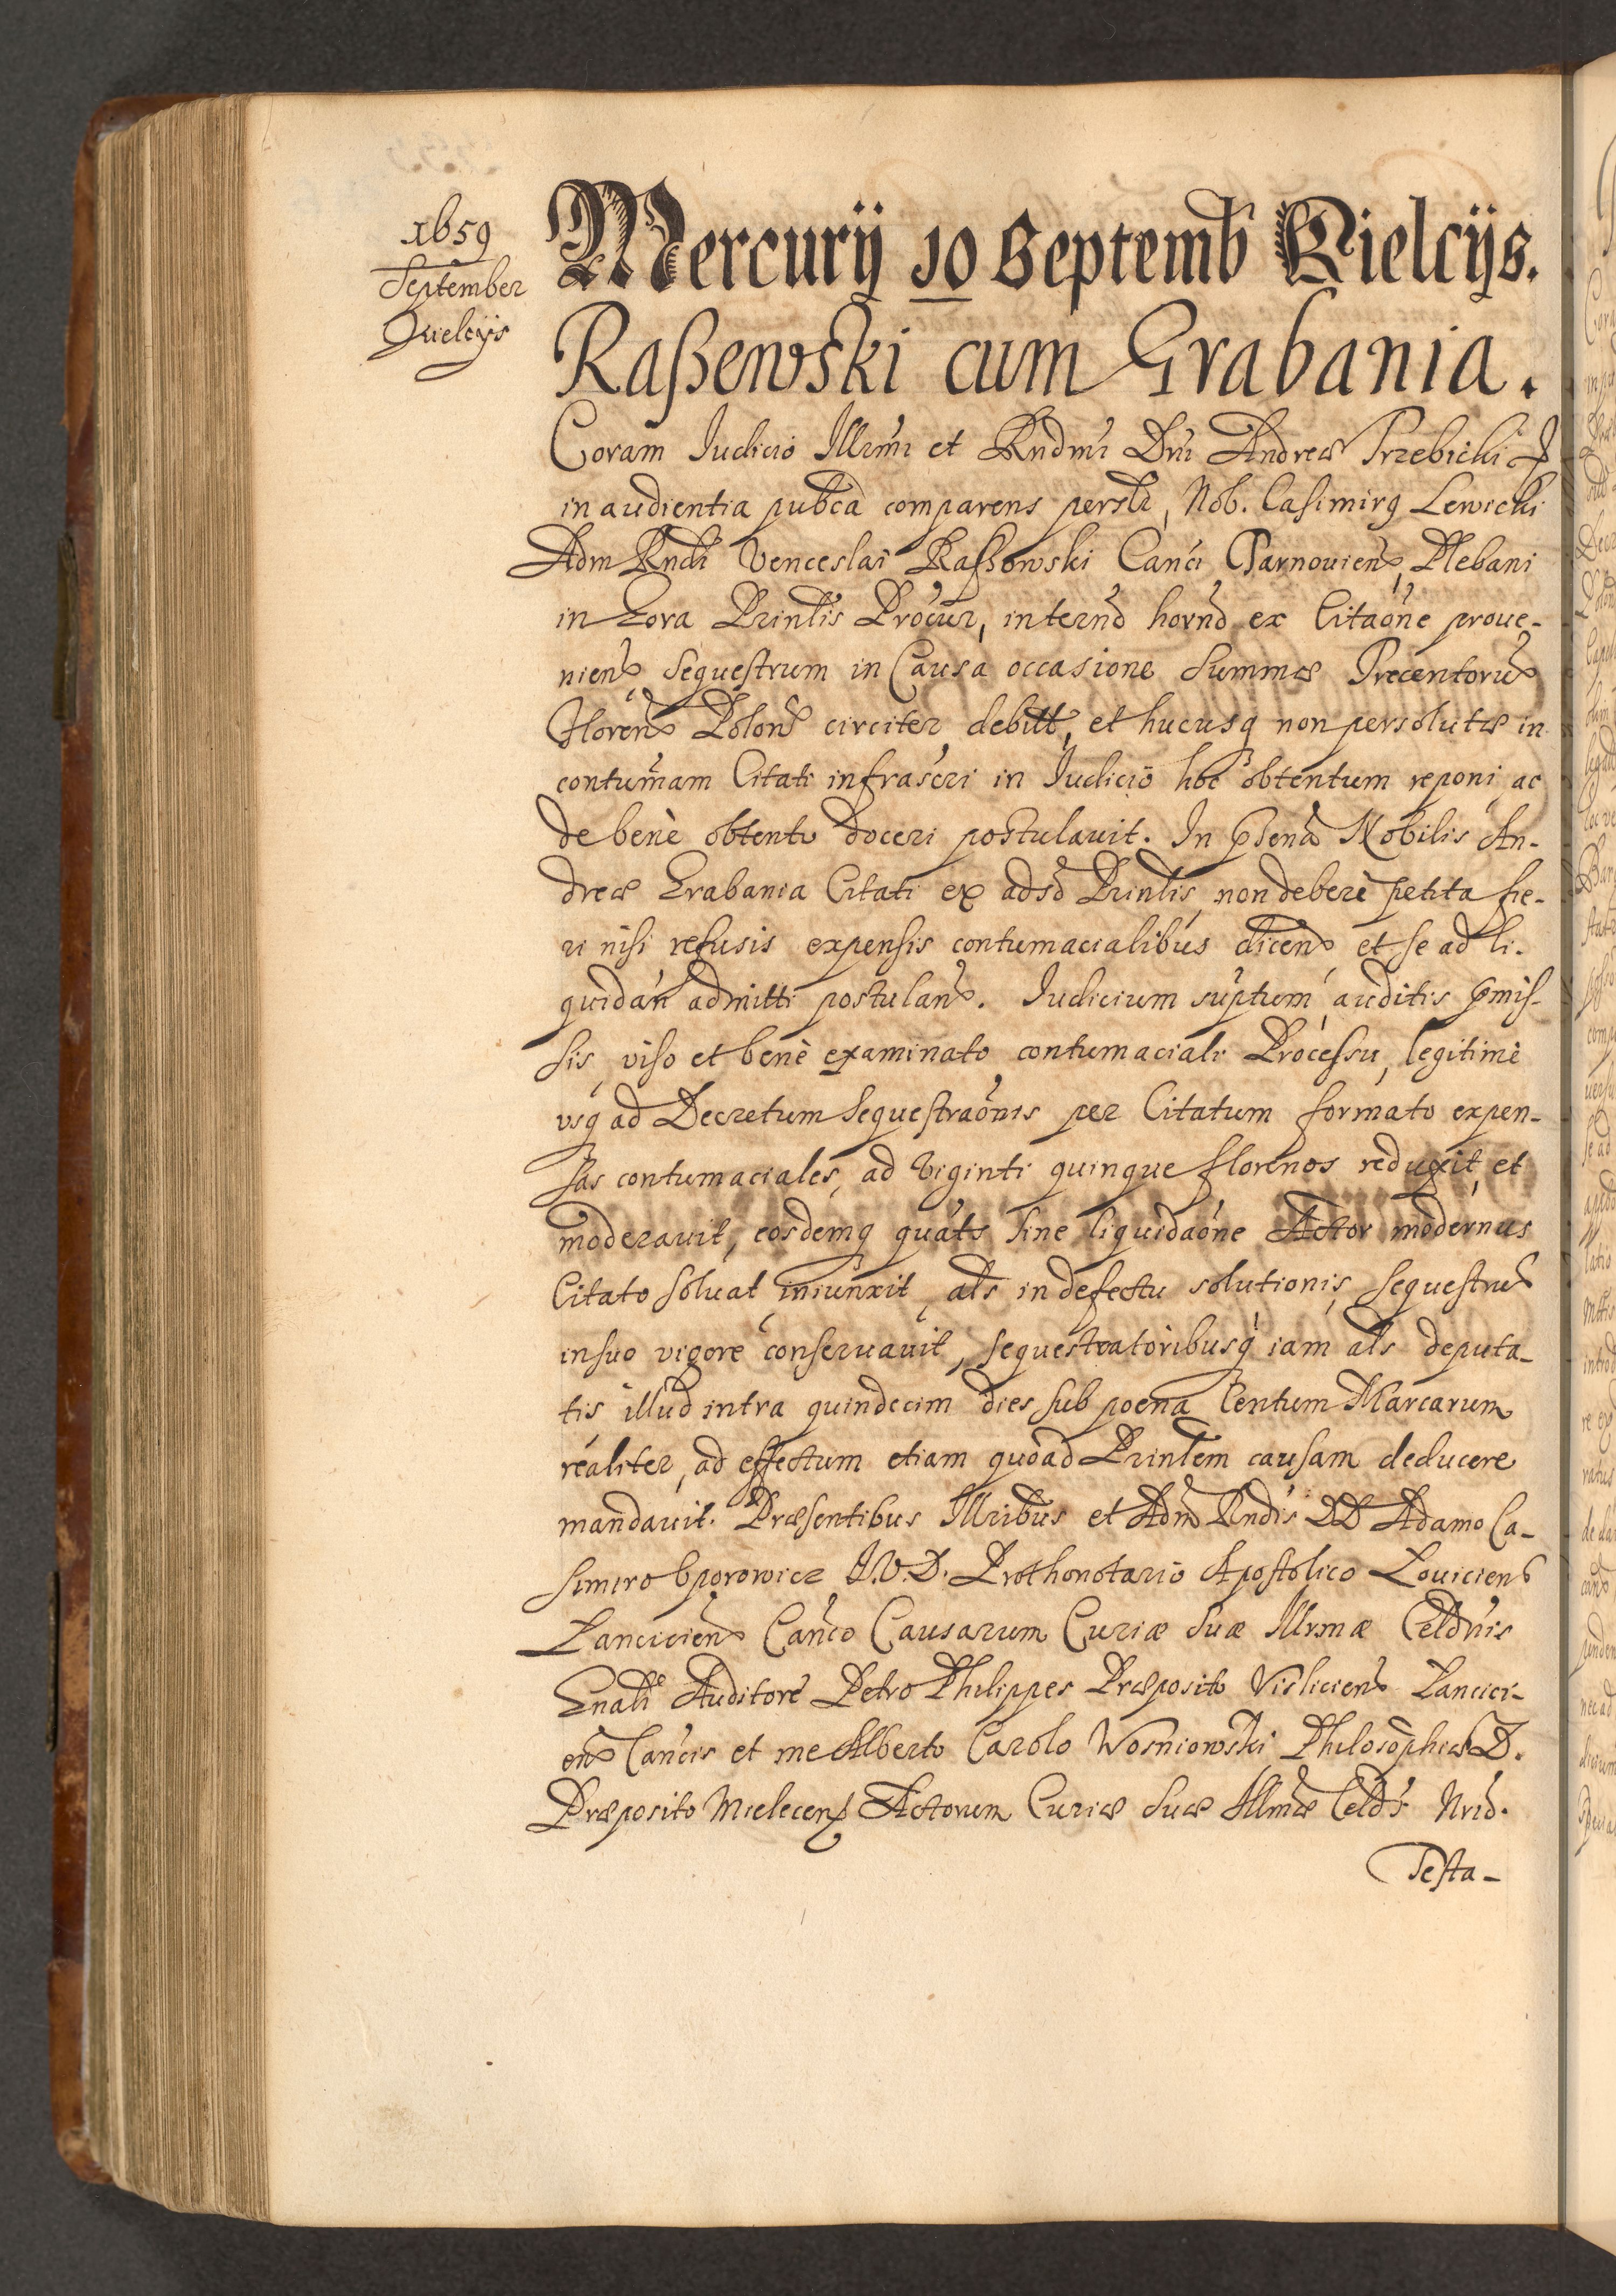 1659
September
Kielcijs
Mercurij 10 Septemb Kielcijs.
Raßewski cum Grabania.
Coram Iudicio Illrmi et Rndmi Dni Andreæ Trzebicki
in audientia pubca comparens persr, Nob. Casimirq Lewicki
Adm Rndi Venceslai Raßowski Canci Tarnouiens, Plebani
in Gora Prinlis Procur, internd hornd ex Citaone proue-
niens Sequestrum in Causa occasione Summæ Trecentorus
Florens Polons circiter debitt, et hucusq non persolutæ in
contumam Citati infrascri in Iudicio hoc obtentum reponi ac
de bene obtento doceri postulauit. In Pdena Nobilis An-
dreæ Grabania Citati ex adsd Prinlis, non debere petita fie-
ri nisi refusis expensis contumacialibus dicens et se ad li-
quidan admitti postulans. Iudicium suptum, auditis Pmis-
sis, viso et bene examinato contumaciali Processu, legitime
vsq ad Decretum Sequestraonis per Citatum formato expen-
sas contumaciales, ad Viginti quinque florenos reduxit, et
moderauit, eosdemq quats sine liquidaone Actor modernus
Citato soluat iniunxit, als in defectu solutionis, Sequestrus
in suo vigore conseruauit, sequestratoribusq iam als deputa-
tis illud intra quindecim dies sub poena Centum Marcarum
realiter, ad effectum etiam quoad Prinlem causam deducere
mandauit. Præsentibus Illribus et Adm Rndis DD Adamo Ca-
simiro Oporowicz I.V.D. Prothonotario Apostolico Louiciens
Lanciciens Canco Causarum Curiæ Suæ Illrmæ Celdnis
Gnali Auditore Petro Philippes Præposito Visliciens Lancici-
ens Cancis et me Alberto Carolo Wosniowski Philosophiæ D.
Præposito Mielecens Actorum Curiæ Suæ Illmæ Celds Nrio.
Testa-